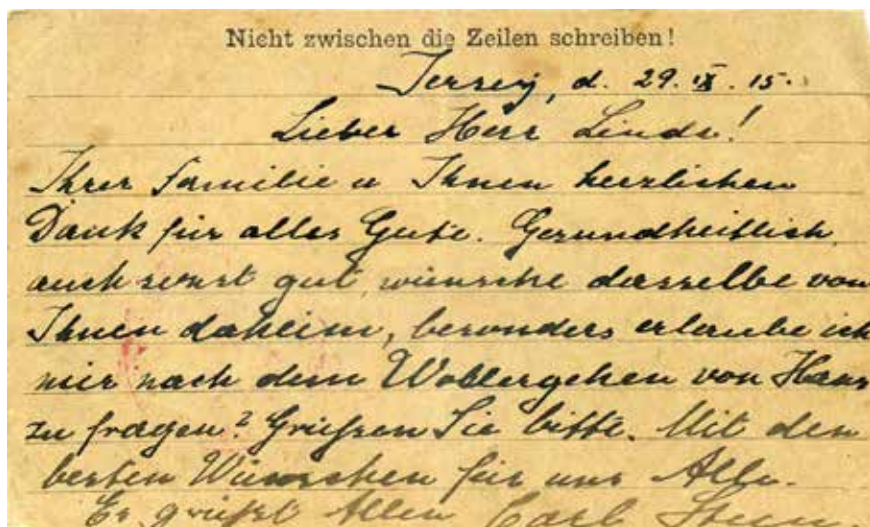 Nicht zwischen die Zeilen schreiben!
Jersey, d. 29. IX. 15.
Lieber Herr Linde!
Ihrer Familie u Ihnen herzlichen
Dank für alles Gute. Gesundheitlich
auch sonst gut, wünsche dasselbe von
Ihnen daheim, besonders erlaube ich
mir nach dem Wohlergehen von Hans
zu fragen? Grüßen Sie bitte. Mit den
besten Wünschen für uns Alle.
Es grüßt Allen Carl